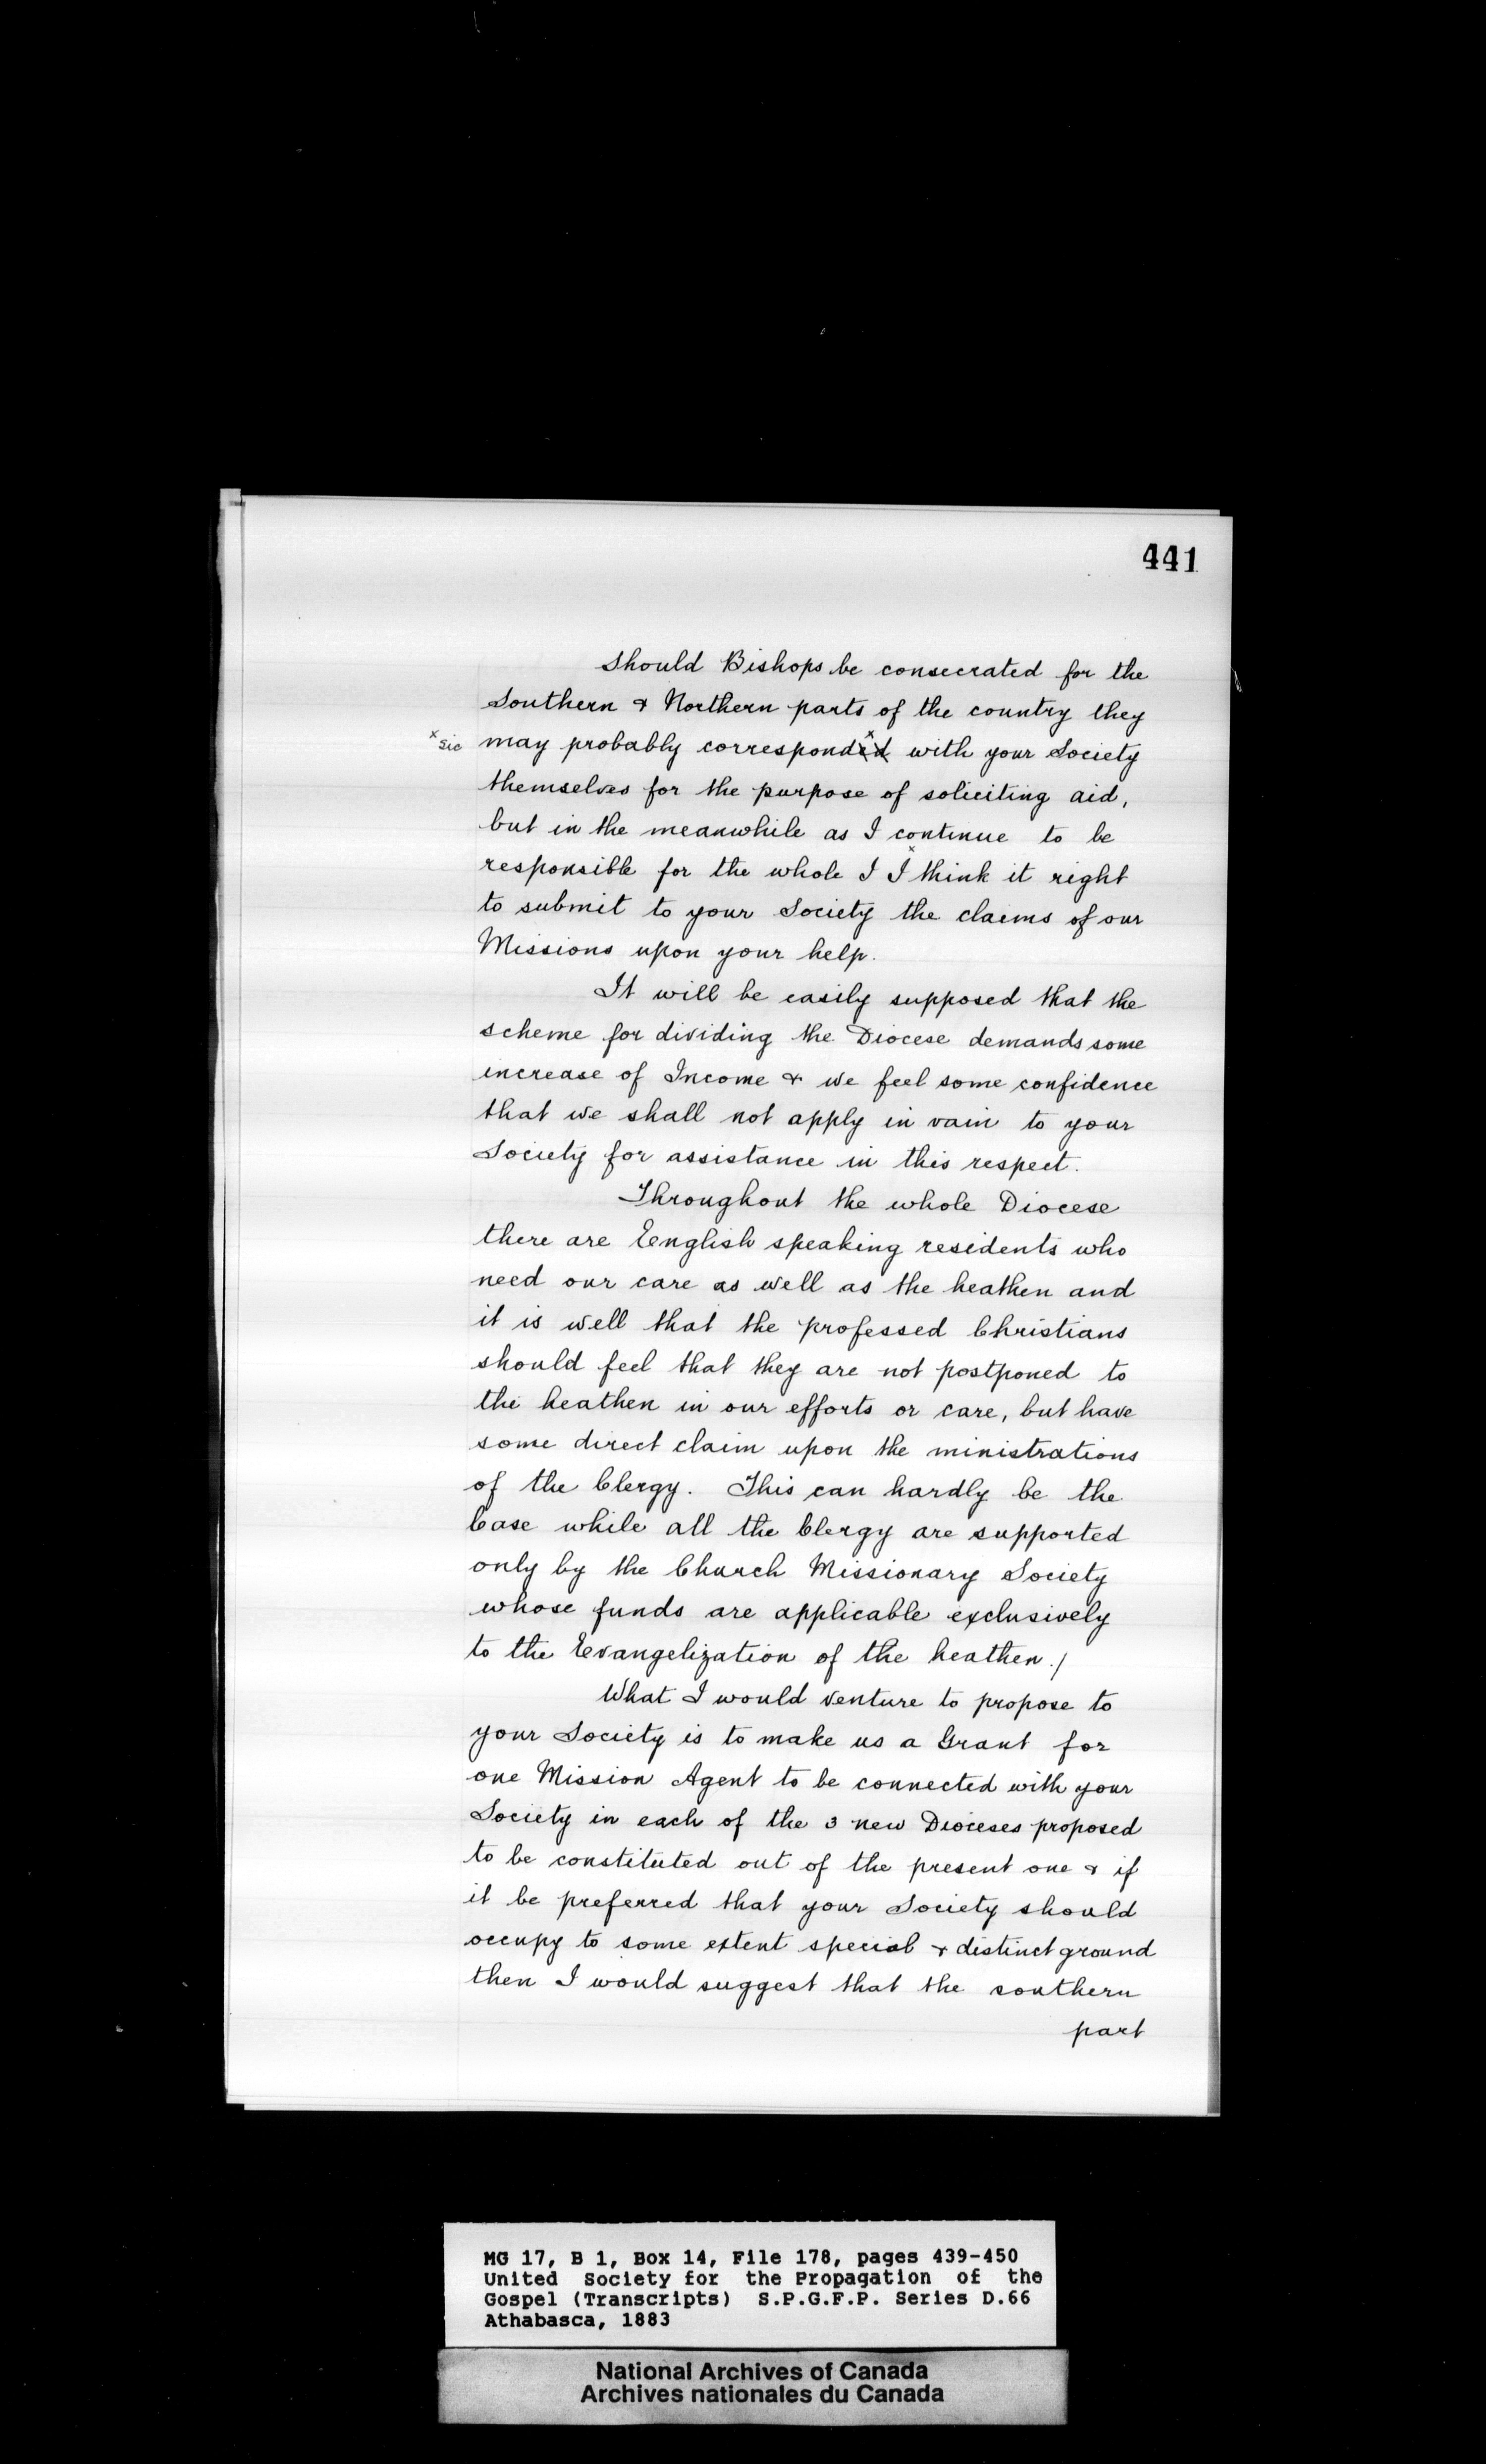 441
Should Bishops be consecrated for the
Southern & Northern parts of the country they
x sic may probably corresponded x with your Society
themselves for the purpose of soliciting aid,
but in the meanwhile as I continue to be
responsible for the whole I x I think it right
to submit to your Society the claims of our
Missions upon your help.
It will be easily supposed that the
scheme for dividing the Diocese demands some
increase of Income & we feel some confidence
that we shall not apply in vain to your
Society for assistance in this respect.
Throughout the whole Diocese
there are English speaking residents who
need our care as well as the heathen and
it is well that the professed Christians
should feel that they are not postponed to
the heathen in our efforts or care, but have
some direct claim upon the ministrations
of the Clergy. This can hardly be the
Case while all the Clergy are supported
only by the Church Missionary Society
whose funds are applicable exclusively
to the Evangelization of the heathen./
What I would venture to propose to
your Society is to make us a Grant for
one Mission Agent to be connected with your
Society in each of the 3 new Dioceses proposed
to be constituted out of the present one & if
it be preferred that your Society should
occupy to some extent special & distinct ground
then I would suggest that the southern
part
MG 17, B 1, Box 14, File 178, pages 439-450
United Society for the Propagation of the
Gospel (Transcripts) S.P.G.F.P. Series D.66
Athabasca, 1883
National Archives of Canada
Archives nationales du Canada